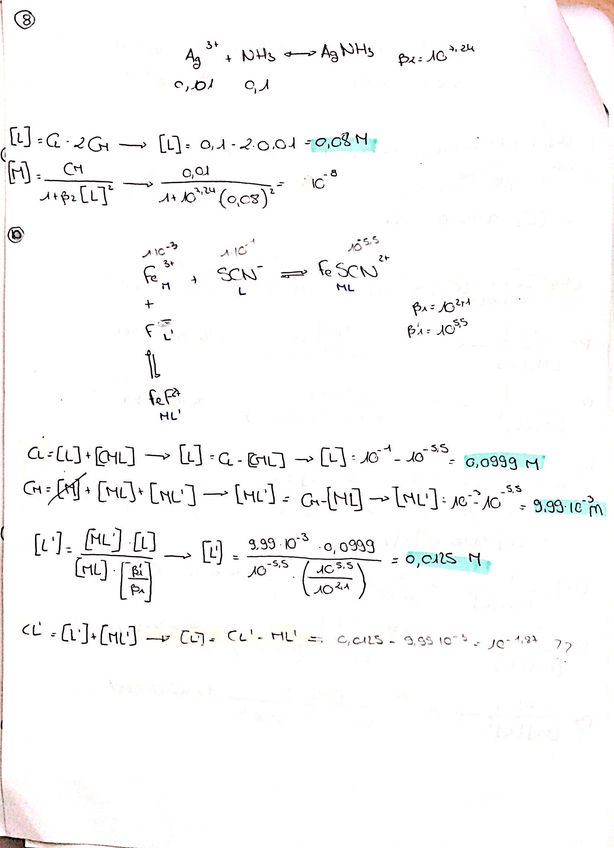 8
Ag³⁺ + NH₃ ⟷ AgNH₃ β₂ = 10^7,24
0,01 0,1
[L] = CL - 2CM → [L] = 0,1 - 2·0,01 = 0,08 M
[M] = CM / (1+β₂[L]²) → 0,01 / (1+10^7,24 (0,08)²) = 10⁻⁸
10
1·10⁻³ 1·10⁻¹ 10^-5,5
Fe³⁺ + SCN⁻ ⇌ FeSCN²⁺
M L ML
+ β₁ = 10^2,1
F⁻ L' β'₁ = 10^5,5
⇅
FeF²⁺
ML'
CL = [L] + [ML] → [L] = CL - [ML] → [L] = 10⁻¹ - 10^-5,5 = 0,0999 M
CM = [M] + [ML] + [ML'] → [ML'] = CM - [ML] → [ML'] = 10⁻³ - 10^-5,5 = 9,99·10⁻³ M
[L'] = [ML']·[L] / ([ML]·[β'₁/β₁]) → [L'] = 9,99·10⁻³ · 0,0999 / (10^-5,5 · (10^5,5 / 10^2,1)) = 0,0125 M
CL' = [L'] + [ML'] → [L'] = CL' - ML' = 0,0125 - 9,99·10⁻³ = 10^-1,87 ??